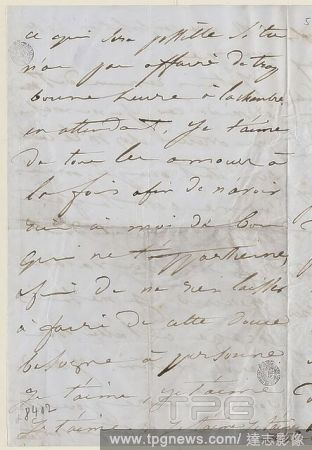 ce qui sera possible si tu
n'as pas affaire de trop
bonne heure à la chambre,
en attendant, je t'aime
de tous les amours à
la fois afin de n'avoir
rien à moi de bon
qui ne t'appartienne
afin de ne rien laisser
à faire de cette douce
besogne à personne
Je t'aime, je t'aime
Je t'aime
8402
TPG
www.tpgnews.com/達志影像